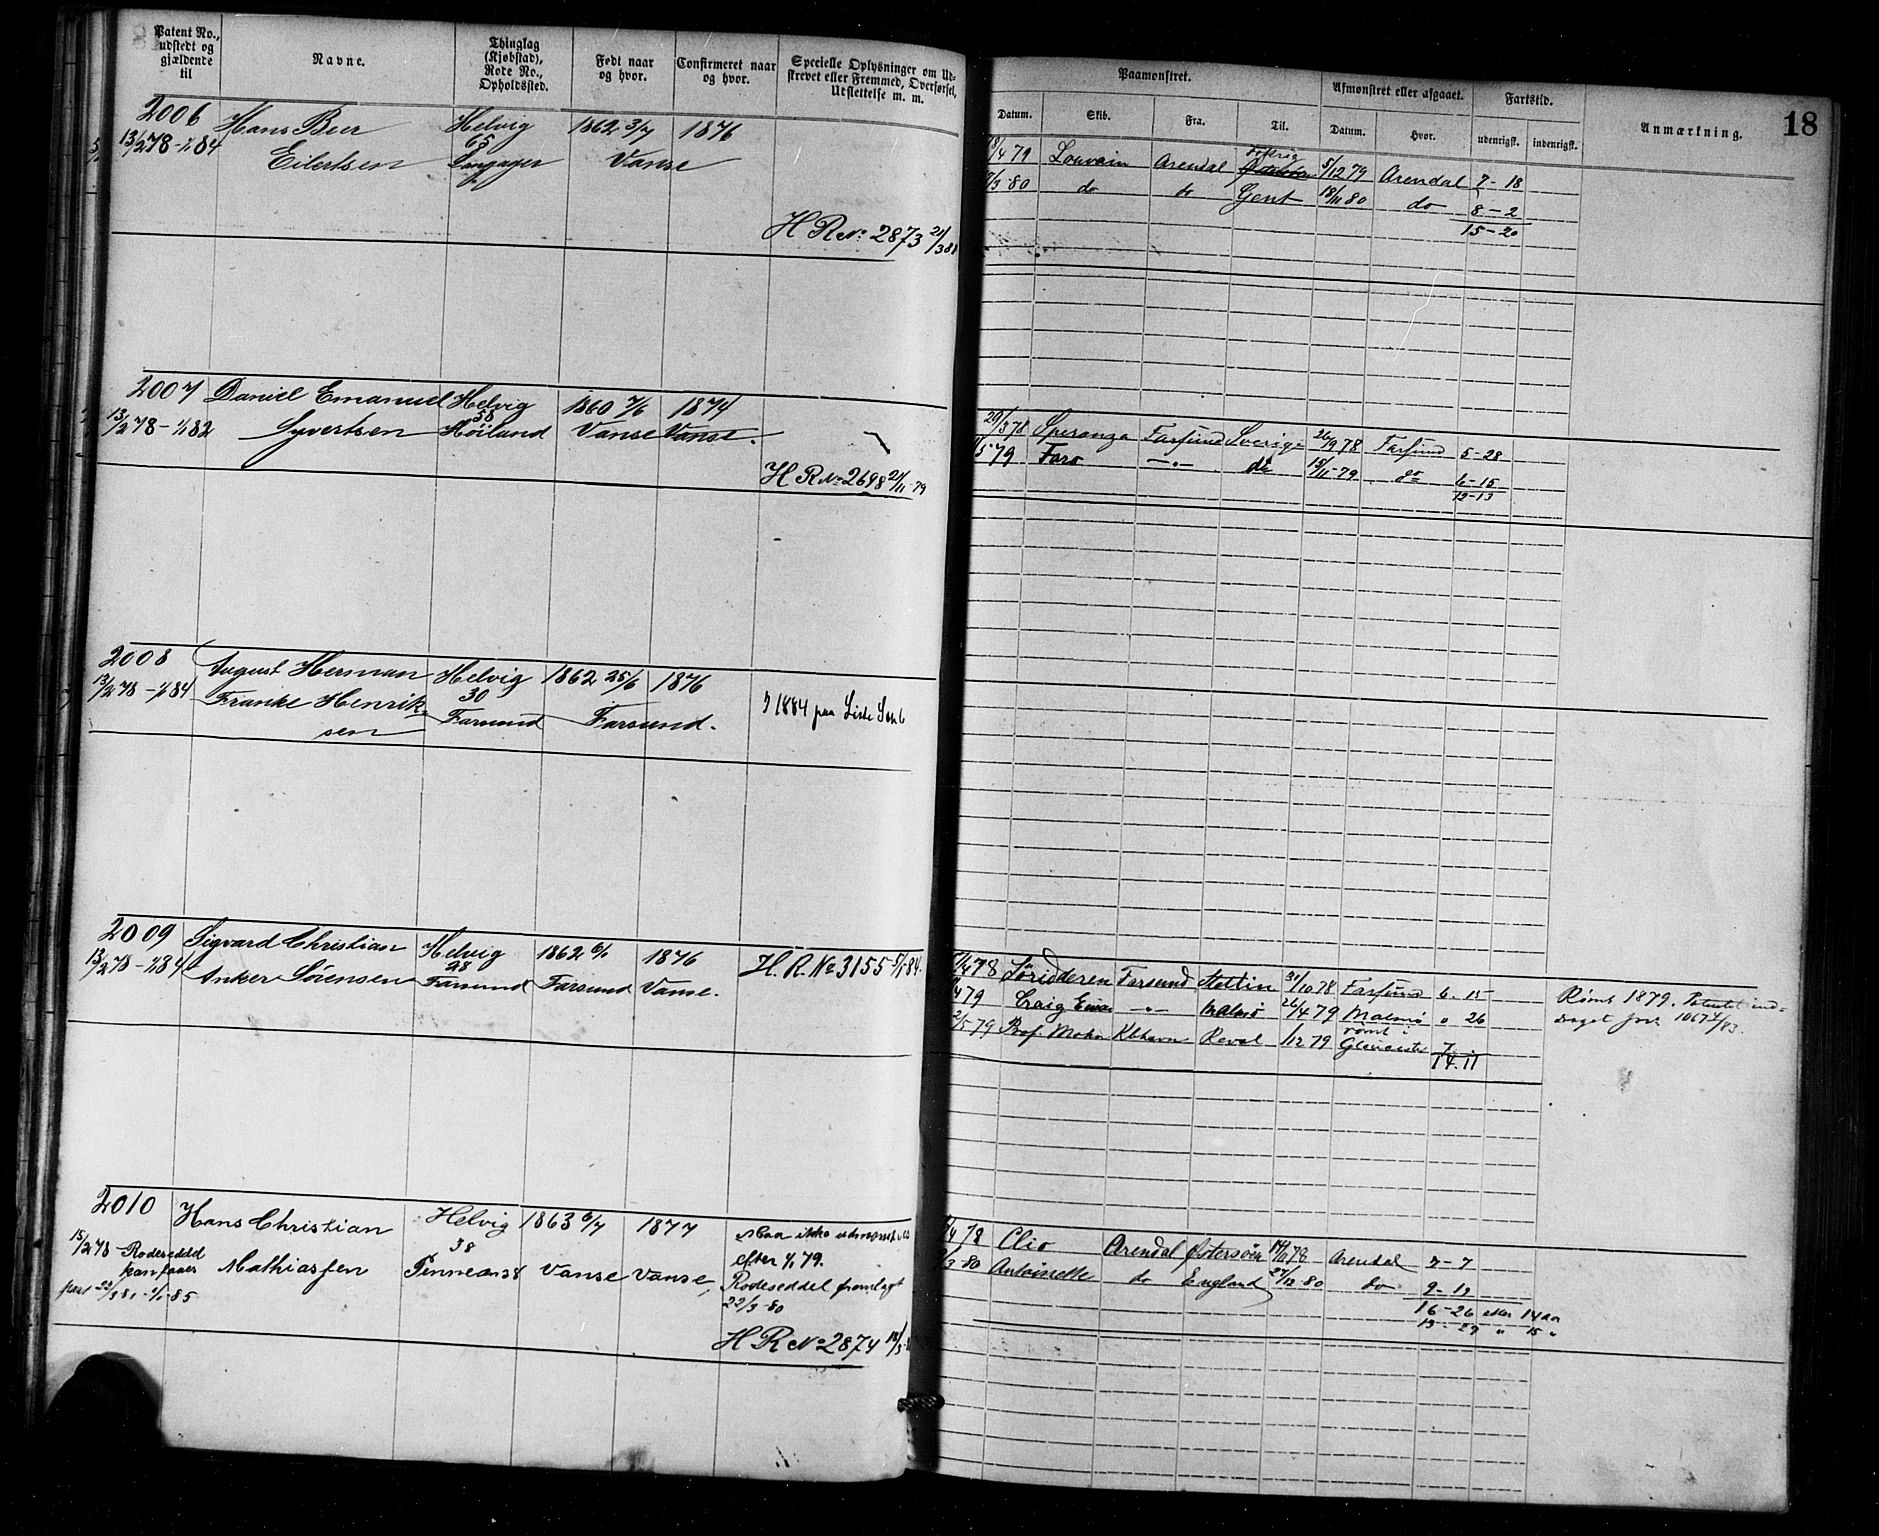 Patent No., udstedt og gjældende til
Navne.
Thinglag (Kjøbstad), Rode No., Opholdssted.
Født naar og hvor.
Confirmeret naar og hvor.
Specielle Oplysninger om Udskrevet eller Fremmed, Overførsel, Udslettelse m. m.
Paamønstret.
Afmønstret eller afgaaet.
Fartstid.
Anmærkning.
18
Datum.
Skib.
Fra.
Til.
Datum.
Hvor.
udenrigsk.
indenrigsk.
2006 Hans Beer Helvig 1862 3/7 1876
13/2 78 - 1/1 84 Eilertsen 65 Langager Vanse
H R No 2873 21/3 81
8/4 79 Louvain Arendal 5/12 79 Arendal 7 - 18
7/3 80 do do Gent 18/11 80 do 8 - 2
15 - 20
2007 Daniel Emanuel Helvig 1860 7/6 1874
13/2 78 - 1/1 82 Syvertsen 58 Høiland Vanse Vanse.
H R No 2698 21/11 79
29/3 78 Speranza Farsund Sverige 26/9 78 Farsund 5 - 28
5 79 Faro —"— do 15/11 79 do 6 - 15
12 - 13
2008 August Herman Helvig 1862 25/6 1876
13/2 78 - 1/1 84 Franke Henrik- 30
sen Farsund Farsund.
1884 paa Liste
2009 Sigvard Christian Helvig 1862 6/1 1876
13/2 78 - 1/1 84 Anker Sørensen 28 Farsund Farsund Vanse.
H. R. No 3155 5/1 84.
4 78 Søridderen Farsund Stettin 31/10 78 Farsund 6. 15
4 79 Craig —"— Malmö 26/4 79 Malmö " 26
2/5 79 Prof. Mohn Kbhavn Reval /12 79 rømt i 7
14. 11
Rømt 1879. Patentet ind-
draget
2010 Hans Christian Helvig 1863 6/7 1877
15/2 78 Rodeseddel Mathiassen 38 Vanse Vanse,
Maa ikke udmønstres
efter 1/1 79.
Rodeseddel fremlagt
22/3 80
H R No 2874
4 78 Clio Arendal Østersøen 14/11 78 Arendal 7 - 7
3 80 Antoinette do England 27/12 80 do 9 - 19
16 - 26 efter 14 aar
15 "